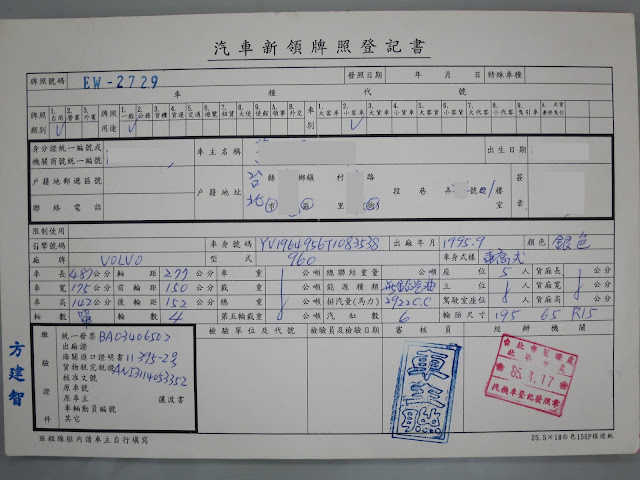 汽車新領牌照登記書
牌照號碼 EW-2729 發照日期 年 月 日 特殊車種
車種代號
牌照類別 1.自用 2.營業 3.外賓 牌照用途 1.一般 2.公務 3.貨櫃 4.貨運 5.交通 6.遊覽 7.租賃 8.大使 9.使館 A.領事 B.外交 車別 1.大客車 2.小客車 3.大貨車 4.小貨車 5.大客貨 6.小客貨 7.大代客 8.小代客
身分證統一編號或機關商號統一編號 車主名稱 出生日期
戶籍地郵遞區號 戶籍地址 台北 縣市 鄉鎮區 村里 路 段 巷 弄 號 樓室 簽章
聯絡電話
限制使用
引擎號碼 車身號碼 YV1964956T1083538 出廠年月 1995.9 顏色 銀色
廠牌 VOLVO 型式 960 車身式樣
車長 487公分 軸距 277公分 車重 公噸 總聯結重量 公噸 座位 5人 貨廂長 公分
車寬 175公分 前輪距 150公分 載重 公噸 能源種類 無鉛汽油 站位 人 貨廂寬 公分
車高 142公分 後輪距 152公分 總重 公噸 排汽量(馬力) 2922C.C 駕駛室座位 人 貨廂高 公分
軸數 單 輪數 4 第五輪載重 公噸 汽缸數 6 輪胎尺寸 195 65 R15
繳驗證件 檢驗單位及代號 檢驗員及檢驗日期 審核員 經辦機關
統一發票
出廠證
海關進口證明書
貨物稅完稅證 ANI3114053352
核准文號
原車號
原車主 讓渡書
車輛動員編號
其它
方建智
台北市監理處
85.1.17
汽機車登記發照章
※粗線框內請車主自行填寫
25.5×18白色150P模造紙